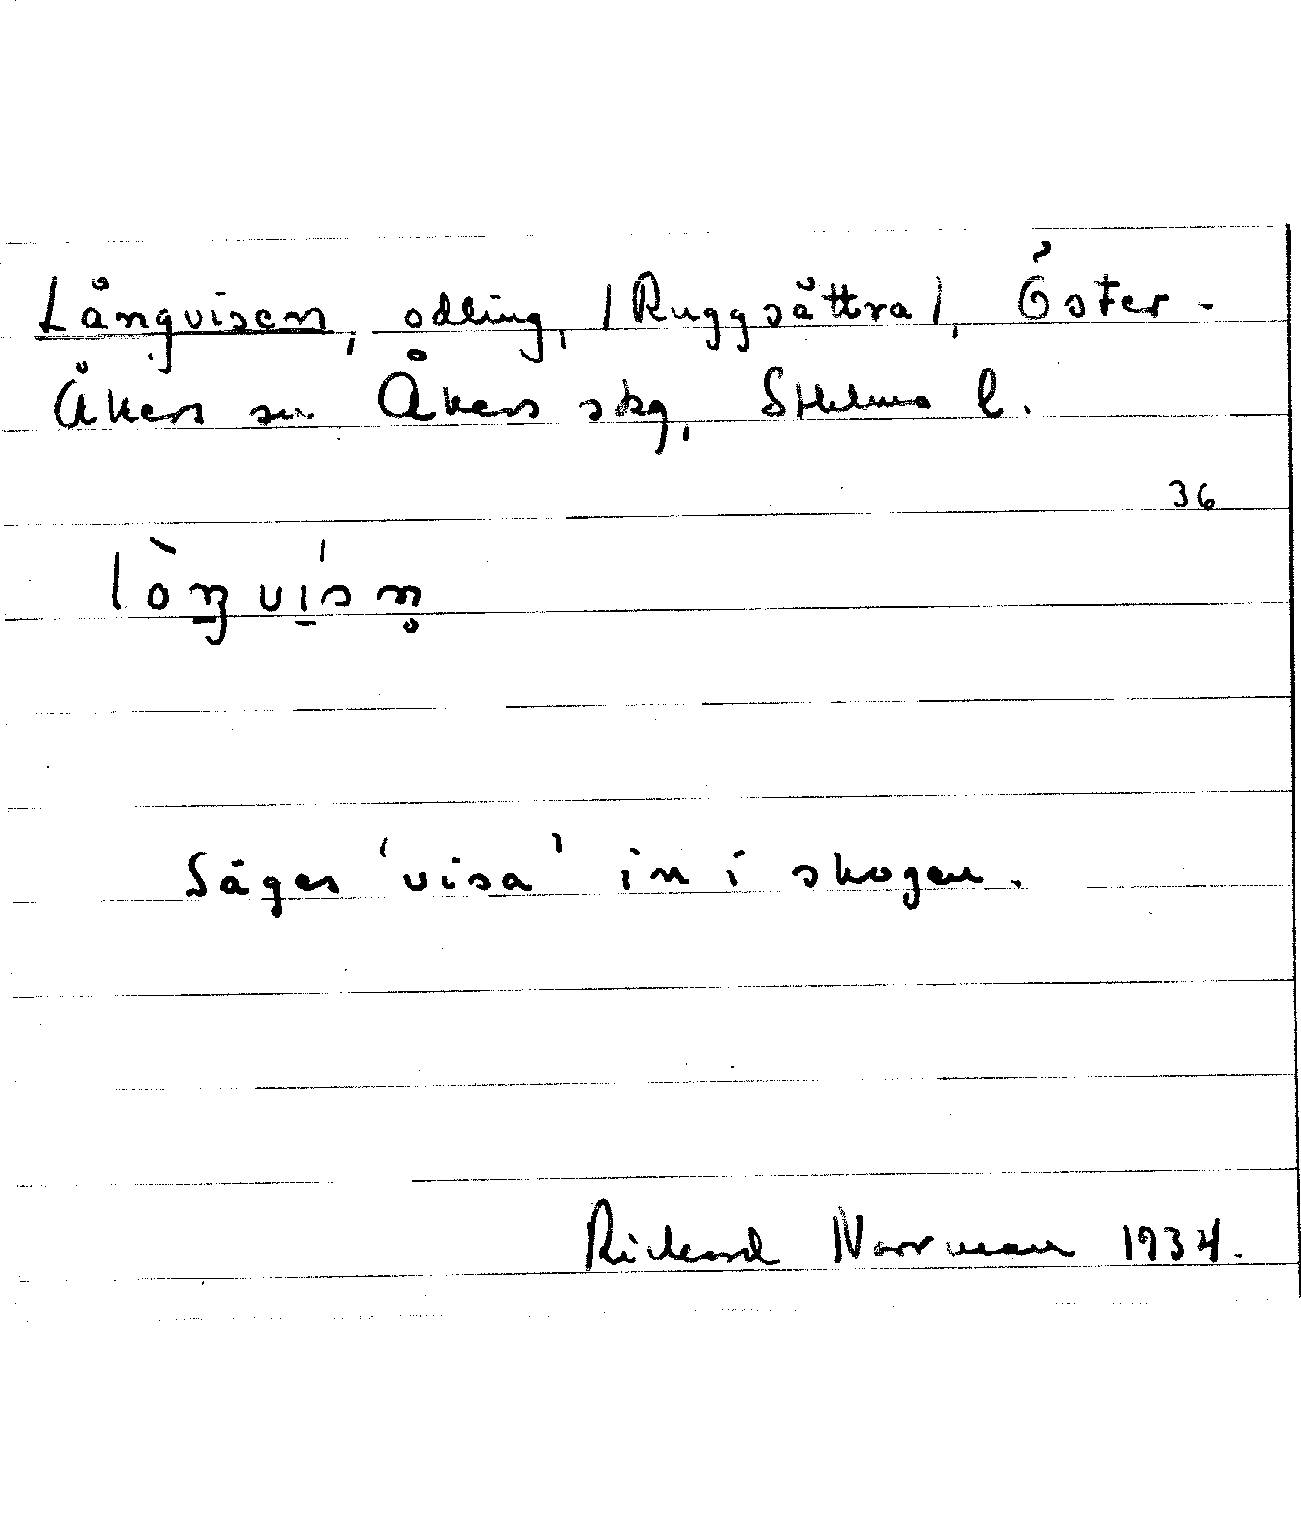 Långvisen, odling, /Ruggsättra/, Öster-
Åkers sn Åkers skg, Sthlms l.
36
lòŋvísn̥
Säges 'visa' in i skogen.
Rickard Norrman 1934.